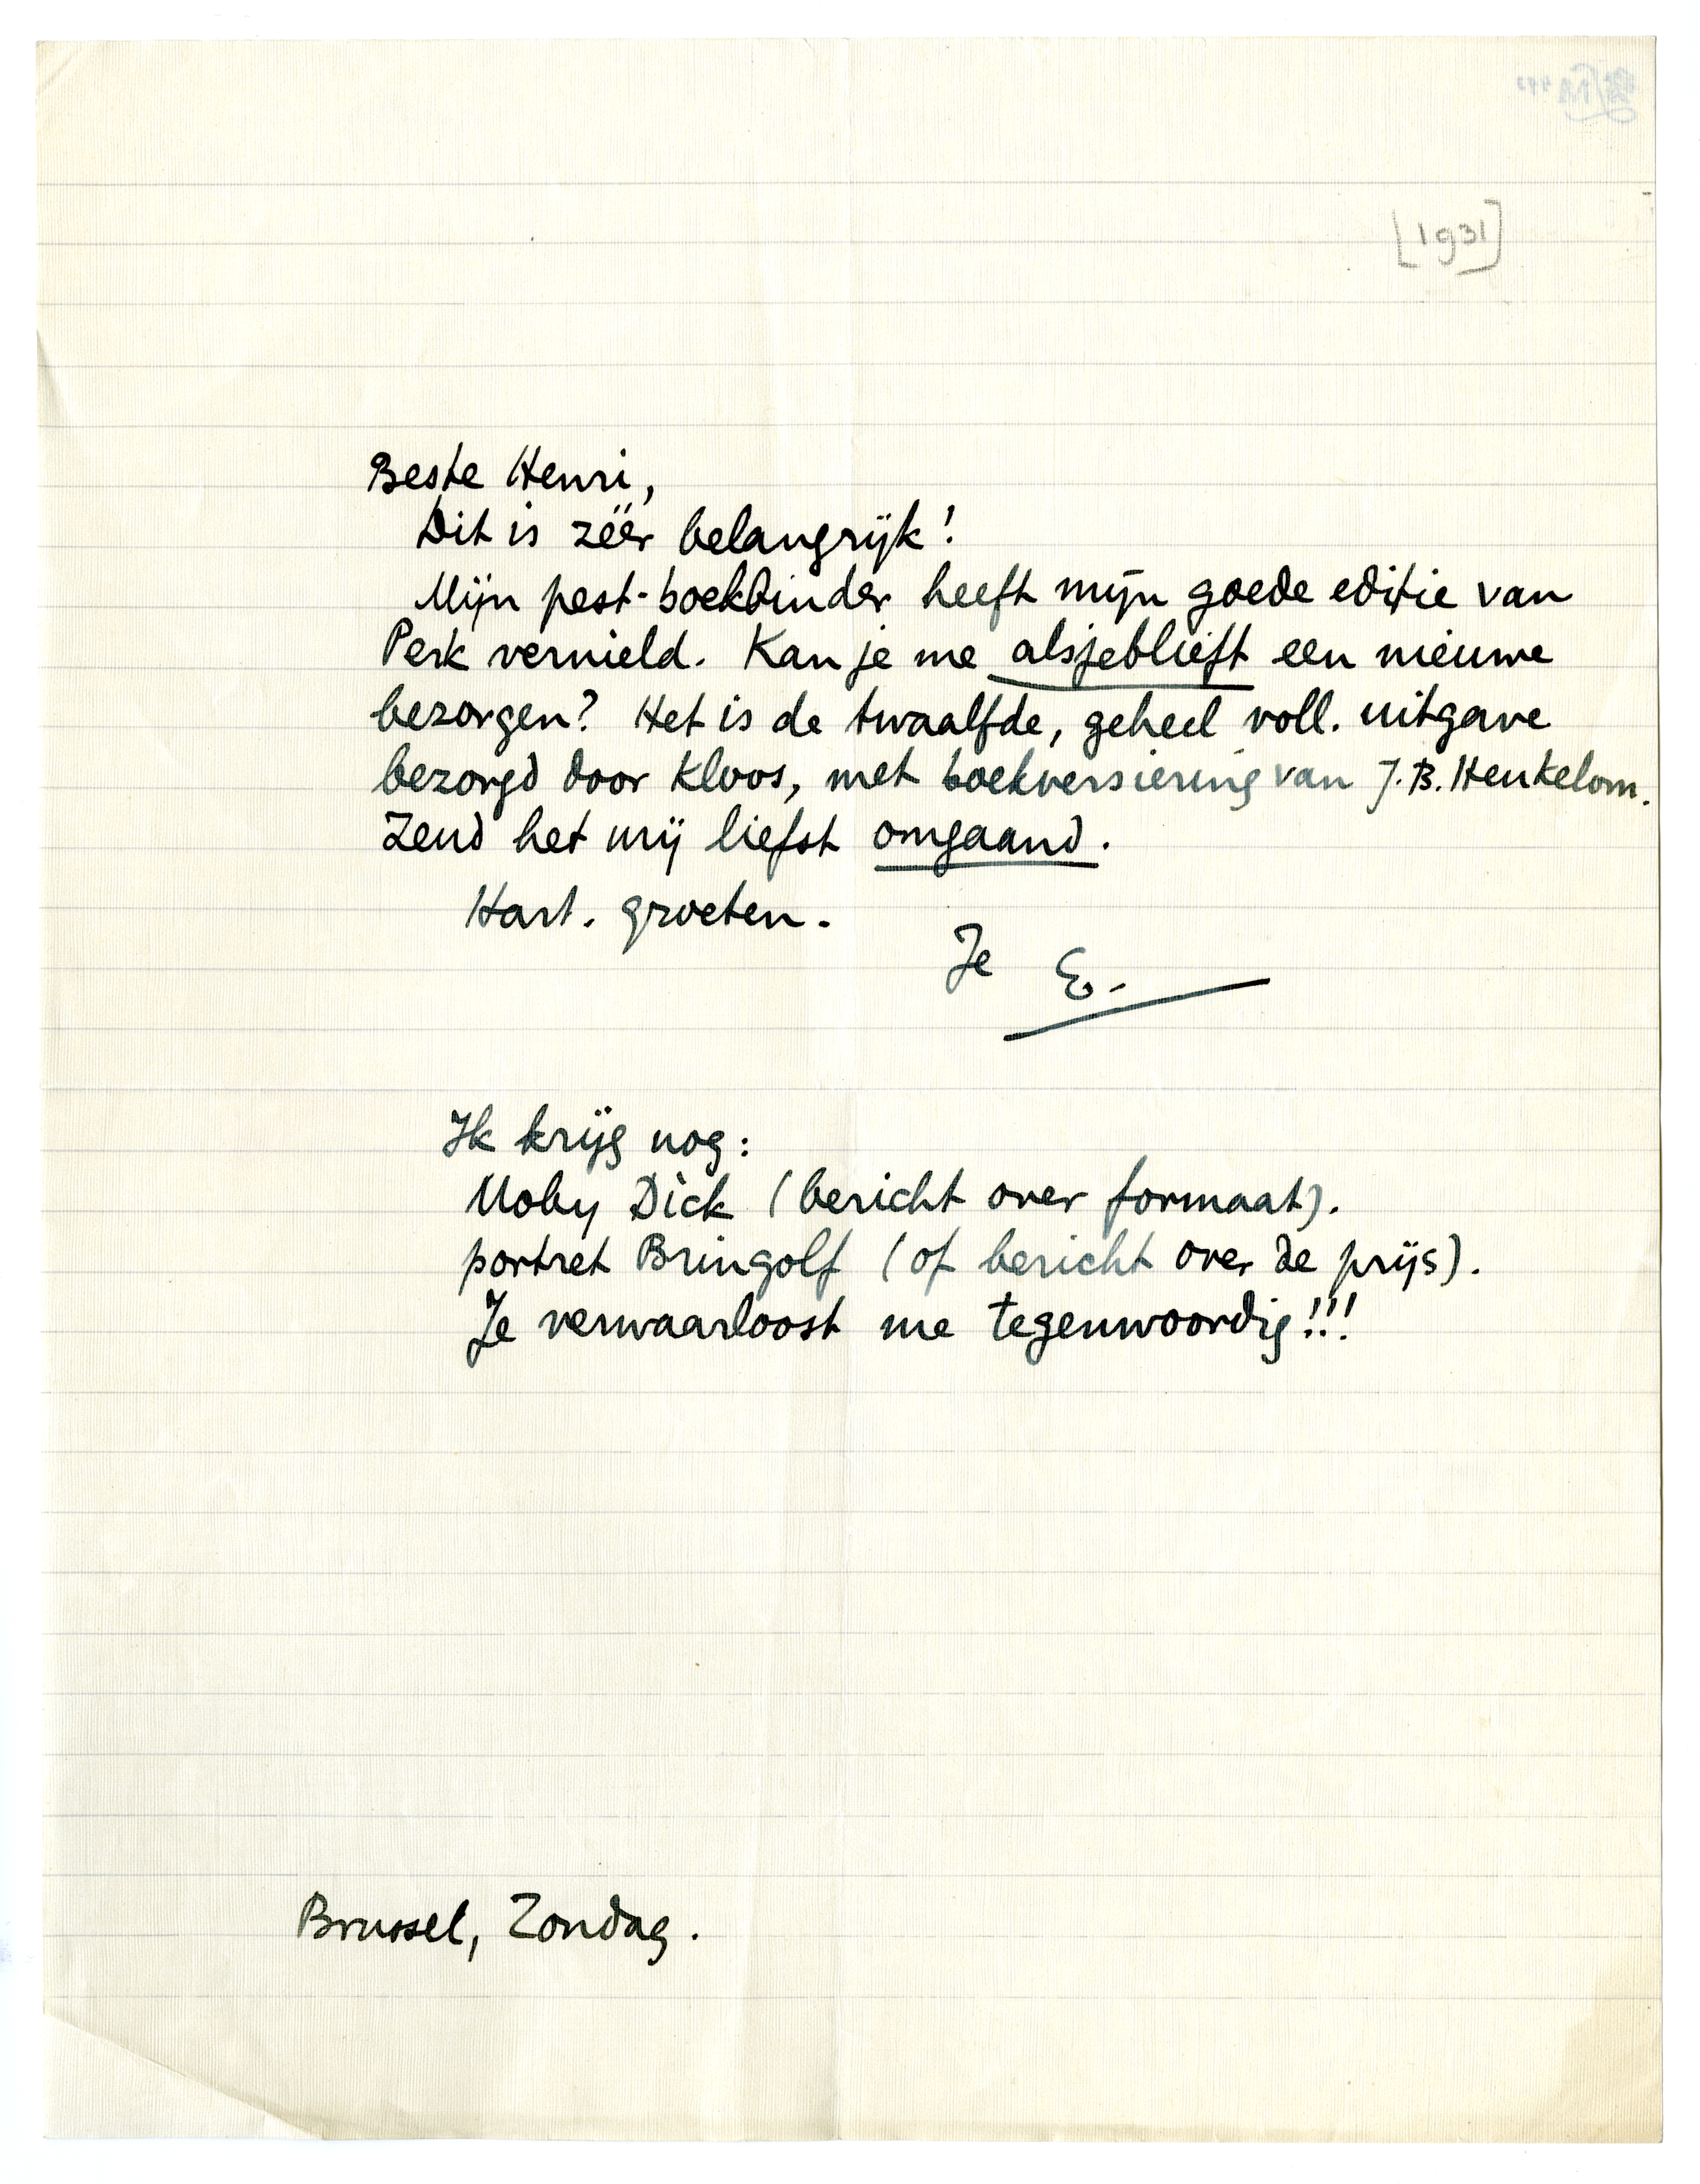 [1931]
Beste Henri,
Dit is zéér belangrijk!
Mijn pest-boekbinder heeft mijn goede editie van
Perk vernield. Kan je me alsjeblieft een nieuwe
bezorgen? Het is de twaalfde, geheel voll. uitgave
bezorgd door Kloos, met boekversiering van J.B. Heukelom.
Zend het mij liefst omgaand.
Hart. groeten.
Je E.
Ik krijg nog:
Moby Dick (bericht over formaat).
portret Bringolf (of bericht over de prijs).
Je verwaarloost me tegenwoordig!!!
Brussel, Zondag.